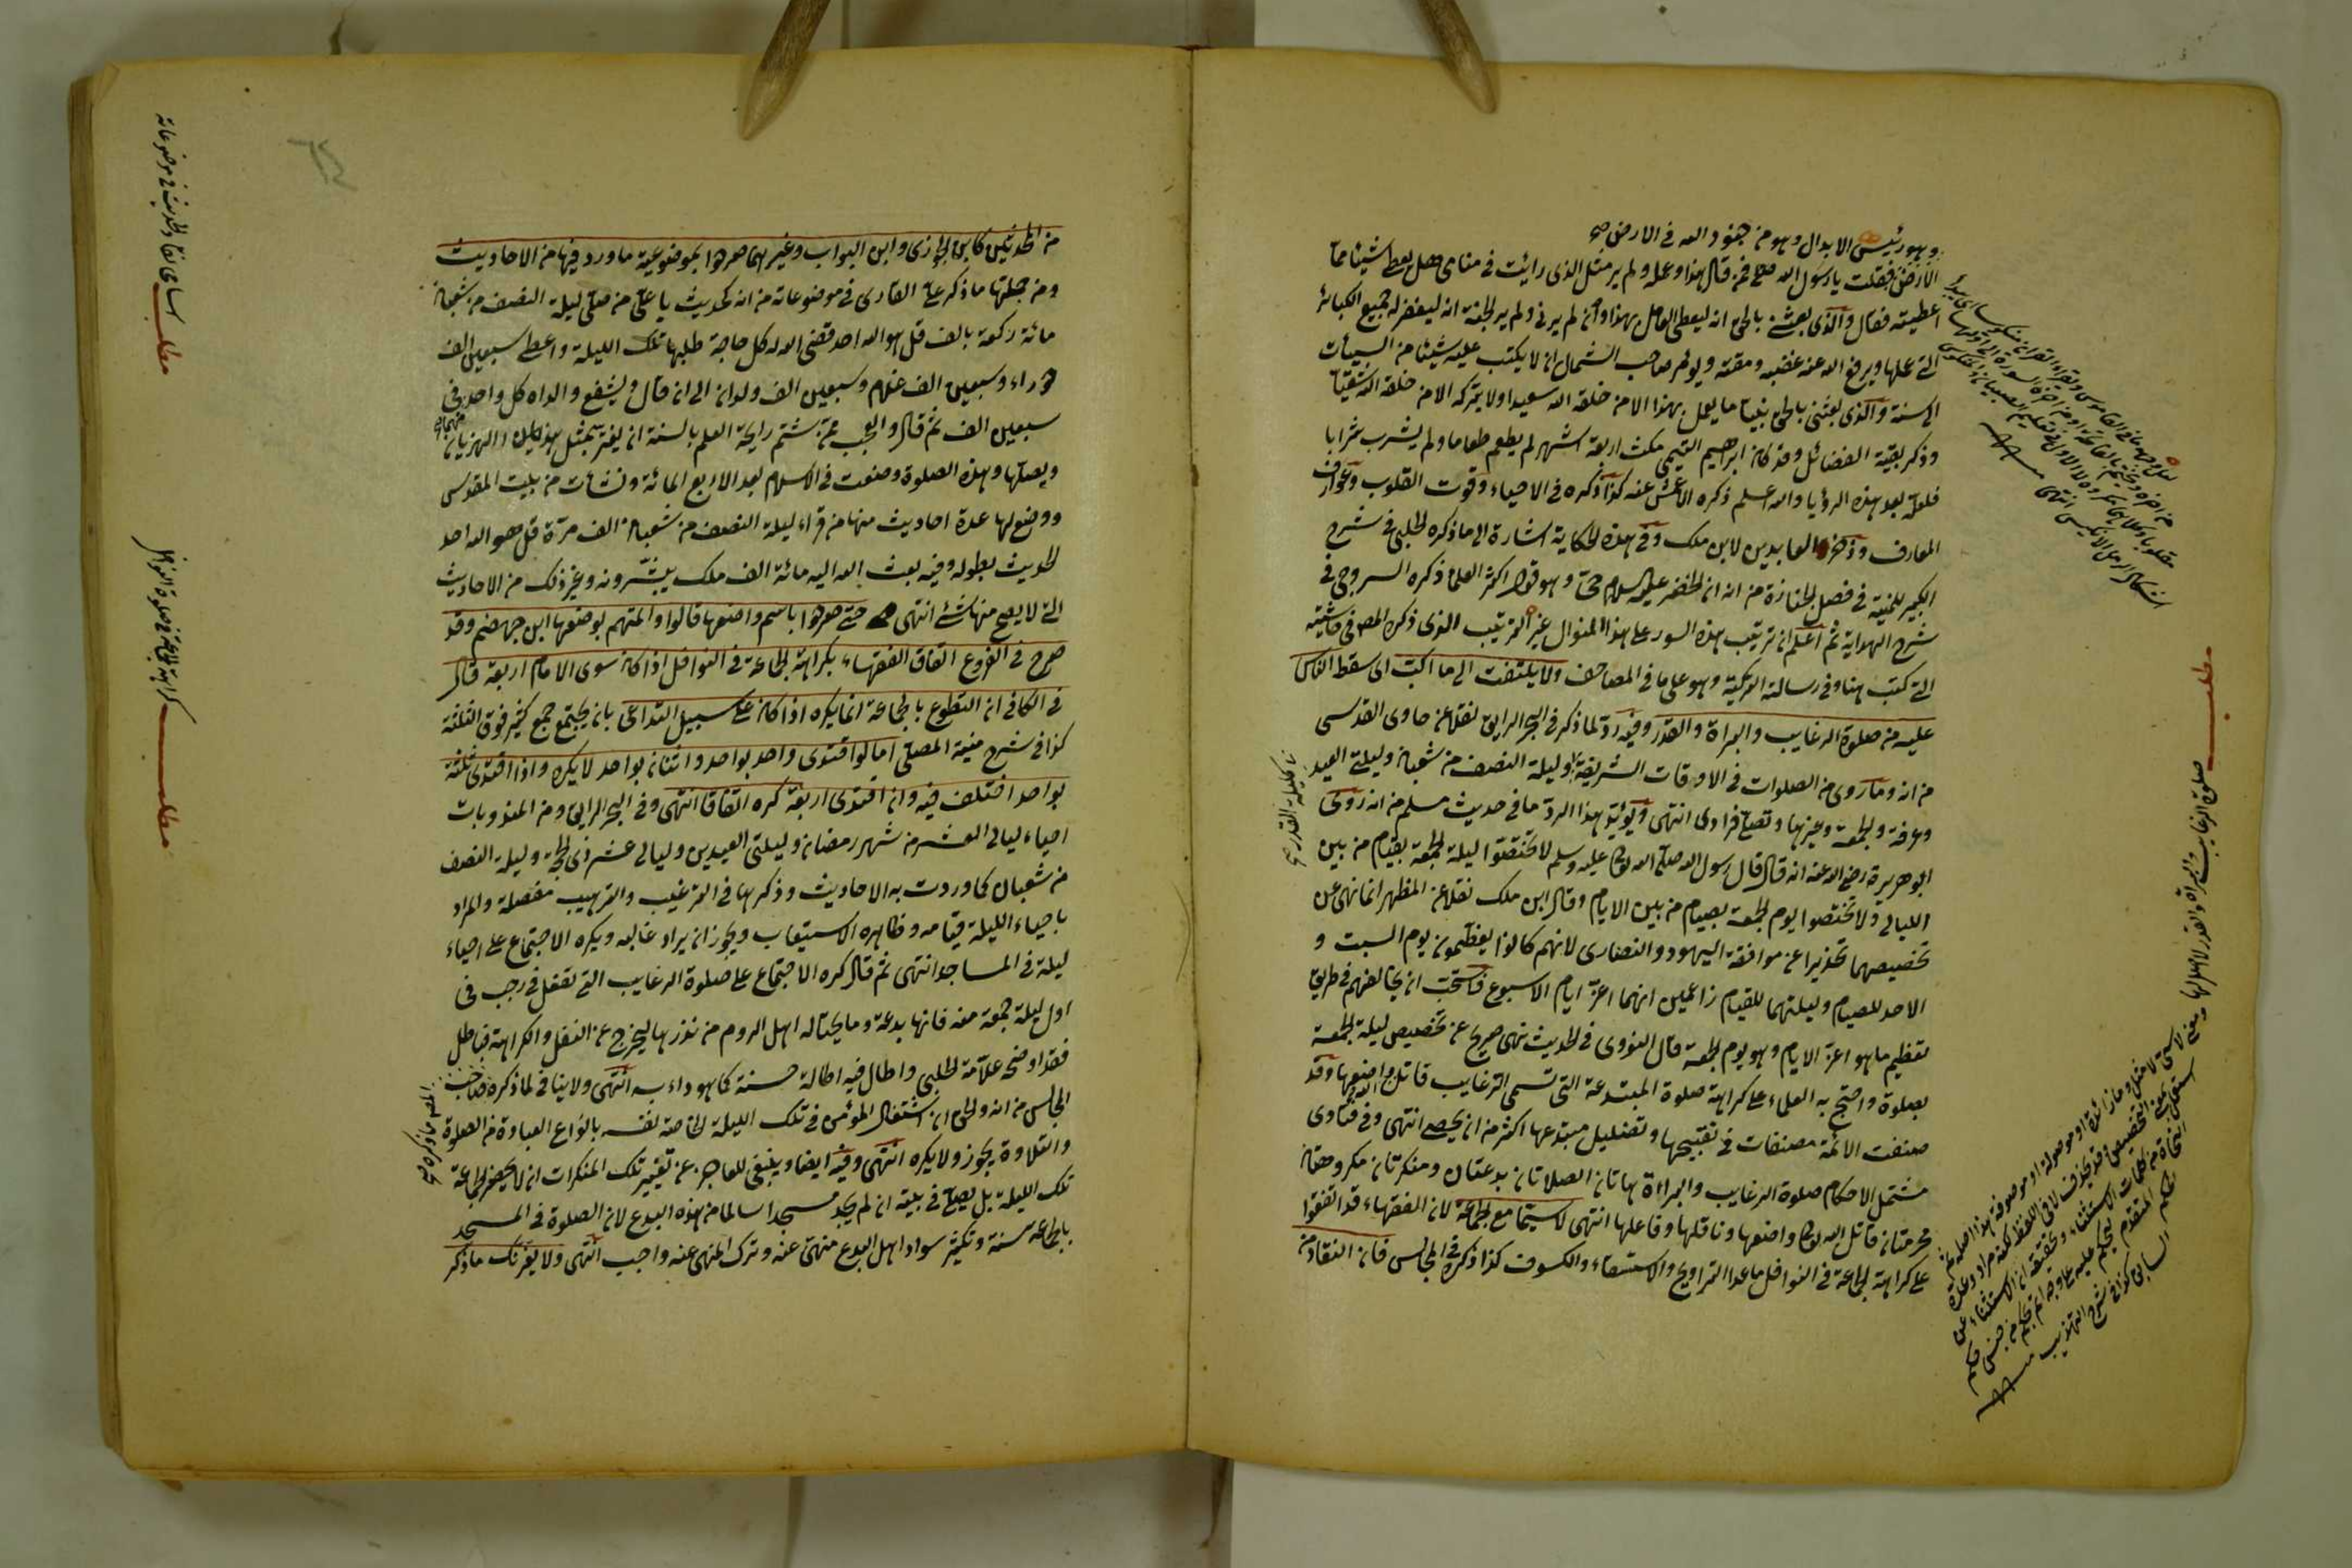 وهو رئيس الابدال وهو من جنود الله في الارض
الارض فقلت يا رسول الله فمن قال هذا وعمله ولم ير مثل الذي رأيت في منامي هل يعطى شيئا مما
اعطيته فقال والذي بعثني بالحق انه ليعطى العامل بهذا وان لم يرني ولم ير الجنة انه ليغفر له جميع الكبائر
التي عملها ويرفع الله عنه غضبه ومقته ويؤمر صاحب الشمال ان لا يكتب عليه شيئا من السيئات
الى سنة والذي بعثني بالحق نبيا ما يعمل بهذا الا من خلقه الله سعيدا ولا يتركه الا من خلقه الله شقيا
وذكر بقية الفضائل وقد كان ابرهيم التيمي مكث اربعة اشهر لم يطعم طعاما ولم يشرب شرابا
فلعله بعد هذه الرؤيا والله اعلم ذكره الاعمش عنه كذا ذكره في الاحياء وقوت القلوب وعوارف
المعارف العابدين لابن ملك وفي هذه الحكاية اشارة الى ما ذكره الحلبي في شرح
الكبير للمنية في فصل الجنازة من انه ان الخضر عليه السلام حي وهو قول اكثر العلماء ذكره السروجي في
شرح الهداية ثم اعلم ان ترتيب هذه السور على هذا المنوال غير الترتيب الذي ذكره المص في حاشيته
التي كتب هنا وفي رسالته التركية وهو على ما في المصاحف ولا يلتفت الى ما اكب اى سقط الناس
عليه من صلوة الرغايب والبراة والقدر وفيه رد لما ذكر في البحر الرايق نقلا عن حاوى القدسي
من انه وما روى من الصلوات في الاوقات الشريفة وليلة النصف من شعبان وليلتي العيد
وعرفة والجمعة وغيرها وتصلى فرادى انتهى ويؤيد هذا الرد ما في حديث مسلم من انه روى
ابو هريرة رضي الله عنه انه قال قال رسول الله صلى الله تعالى عليه وسلم لا تختصوا ليلة الجمعة بقيام من بين
الليالي ولا تختصوا يوم الجمعة بصيام من بين الايام وقال ابن ملك نقلا عن المظهر انما نهى عن
تخصيصهما تحذيرا عن موافقة اليهود والنصارى لانهم كانوا يعظمون يوم السبت و
الاحد للصيام وليلتهما للقيام زاعمين انهما اعز ايام الاسبوع فاستحب ان يخالفهم في طريق
تعظيم ما هو اعز الايام وهو يوم الجمعة قال النووى في الحديث نهى صريح عن تخصيص ليلة الجمعة
بصلوة واحتج به العلماء على كراهة صلوة المبتدعة التي تسمى الرغايب قاتل الله واضعها وقد
صنفت الائمة مصنفات في تقبيحها وتضليل مبتدعها اكثر من ان يحصى انتهى وفي فتاوى
مشتمل الاحكام صلوة الرغايب والبراءة هاتان الصلاتان بدعتان ومنكرتان مكروهتان
محرمتان قاتل الله تعالى واضعها وناقلها وفاعلها انتهى لاسيما مع الجماعة لان الفقهاء قد اتفقوا
على كراهة الجماعة في النوافل ماعدا التراويح والاستسقاء والكسوف كذا ذكره في المجالس فان النقاد من
مطلب
صلوة الرغايب والبراة والقدر لا اصل لها
من المحدثين كابن الجوزى وابن البواب وغيرهما صرحوا بموضوعية ما ورد فيها من الاحاديث
ومن جملتها ما ذكر على القارى في موضوعاته من انه حديث يا علي من صلى ليلة النصف من شعبان
مائة ركعة بالف قل هو الله احد قضى الله له كل حاجة طلبها تلك الليلة واعطى سبعين الف
حوراء وسبعين الف غلام وسبعين الف ولدان الى ان قال ويشفع والداه كل واحد في
سبعين الف ثم قال والعجب ممن شم رايحة العلم بالسنة ان يغتر بمثل هذا الهذيان
ويصلها وهذه الصلوة وضعت في الاسلام بعد الاربع المائة ونشات من بيت المقدس
ووضع لها عدة احاديث منها من قراء ليلة النصف من شعبان الف مرة قل هو الله احد
الحديث بطوله وفيه بعث الله اليه مائة الف ملك يبشرونه وغير ذلك من الاحاديث
التي لا يصح منها شئ انتهى حتى صرحوا باسم واضعها قالوا والمتهم بوضعها ابن جهضم وقد
صرح في الفروع اتفاق الفقهاء بكراهة الجماعة في النوافل اذا كان سوى الامام اربعة قال
في الكافي ان التطوع بالجماعة انما يكره اذا كان على سبيل التداعى بان يجتمع جمع كثير فوق الثلثة
كذا في شرح منية المصلى اما لو اقتدى واحد بواحد واثنان بواحد لا يكره واذا اقتدى ثلثة
بواحد اختلف فيه وان اقتدى اربعة كره اتفاقا انتهى وفي البحر الرايق ومن المندوبات
احياء ليالى العشر من شهر رمضان وليلتي العيدين وليالى عشر ذى الحجة وليلة النصف
من شعبان كما وردت به الاحاديث وذكرها في الترغيب والترهيب مفصلة والمراد
باحياء الليلة قيامه وظاهره الاستيعاب ويجوز ان يراد غالبه ويكره الاجتماع على احياء
ليلة في المساجد انتهى ثم قال كره الاجتماع على صلوة الرغايب التي تفعل في رجب في
اول ليلة جمعة منه فانها بدعة وما يحتاله اهل الروم من نذرها ليخرج عن النفل والكراهة فباطل
فقد اوضحه علامة الحلبي واطال فيه اطالة حسنة كما هو داءبه انتهى ولا ينافي لما ذكره صاحب
المجالس من انه والحق ان اشتغال المؤمن في تلك الليلة لخاصة نفسه بانواع العبادة من الصلوة
والتلاوة يجوز ولا يكره انتهى وفيه ايضا وينبغى للعاجز عن تغيير تلك المنكرات ان لا يحضر الجماعة
تلك الليلة بل يصلى في بيته ان لم يجد مسجدا سالما من هذه البدع لان الصلوة في المسجد
بالجماعة سنة وتكثير سواد اهل البدع منهى عنه وترك المنهى عنه واجب انتهى ولا يغرنك ما ذكر
مطلب
مطلب
كراهة الجماعة في صلوة النوافل